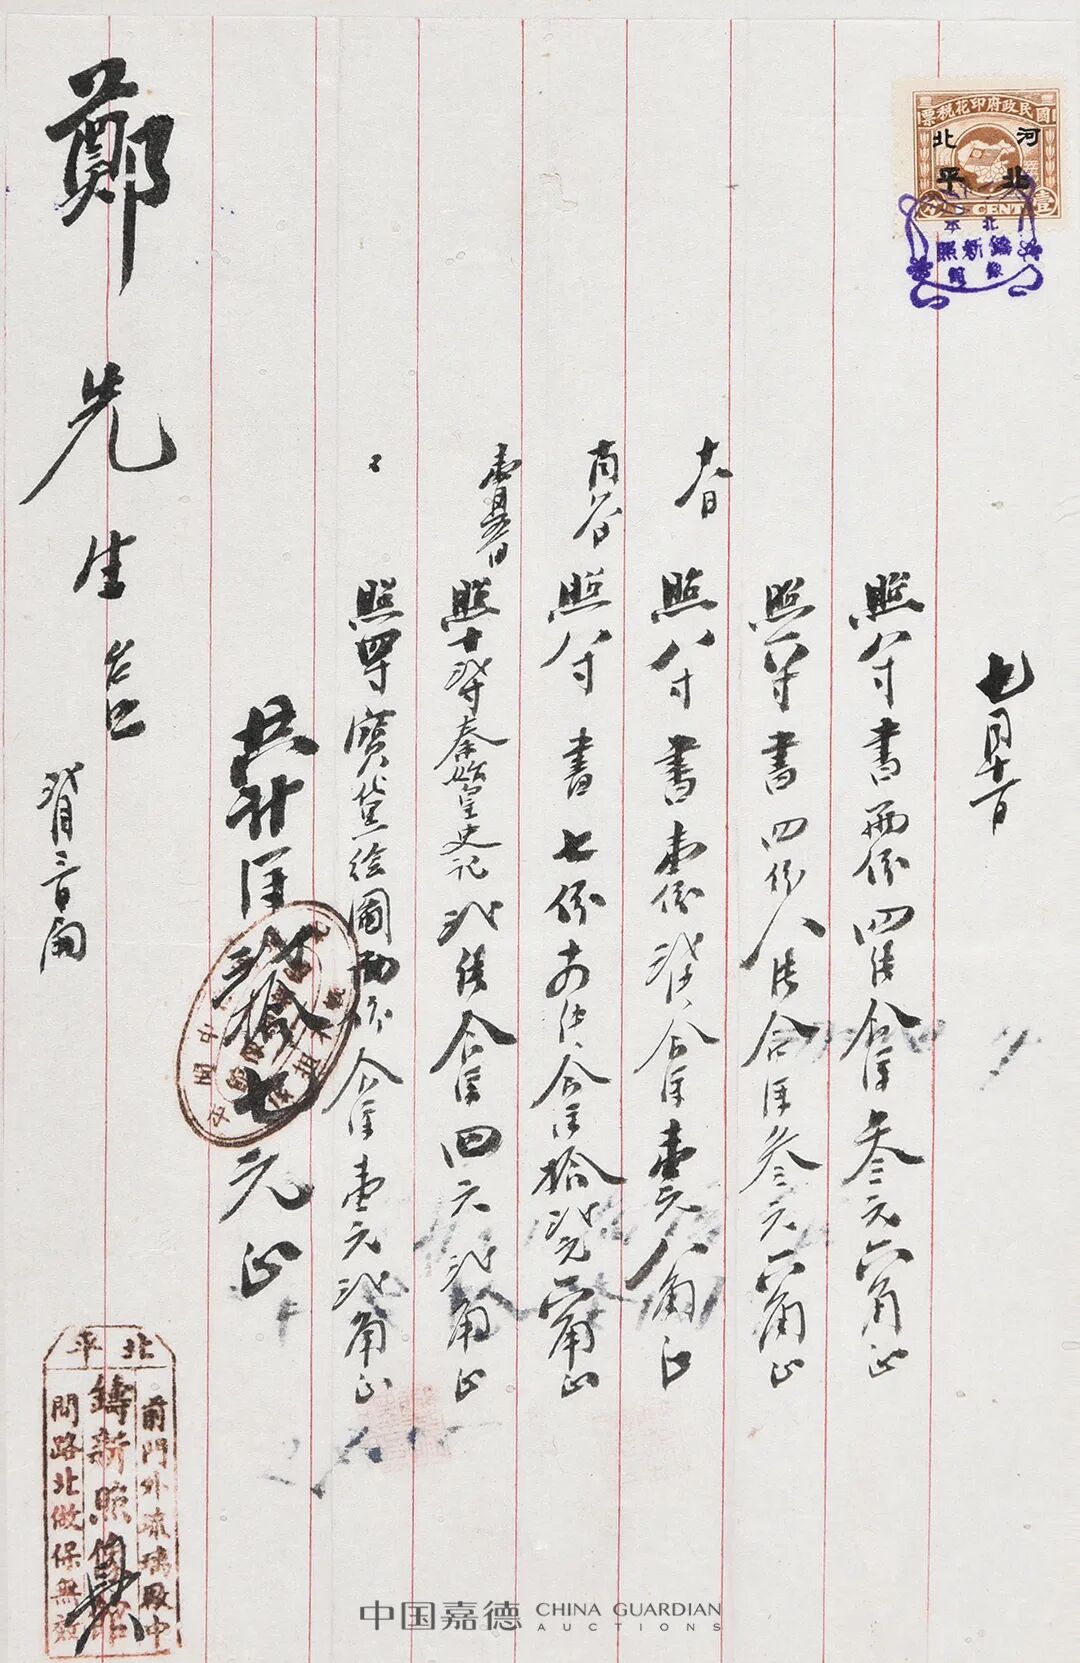 國民政府印花稅票
河北
北平
壹
CENT
北平
鑄新照
像館
七月十一日
照八寸書兩份四張合洋叁元六角正
照六寸書四份八张合洋叁元六角正
照八寸書壹份合洋壹元八角正
照八寸書七份合洋拾貳元六角正
照十貳寸秦始皇史記貳張合洋四元貳角正
照四寸寶黛绘圖兩份合洋壹元貳角正
共計洋貳拾七元正
鄭先生台
北平
前門外琉璃廠中
鑄新照像館
間路北做保無效
中国嘉德 CHINA GUARDIAN AUCTIONS